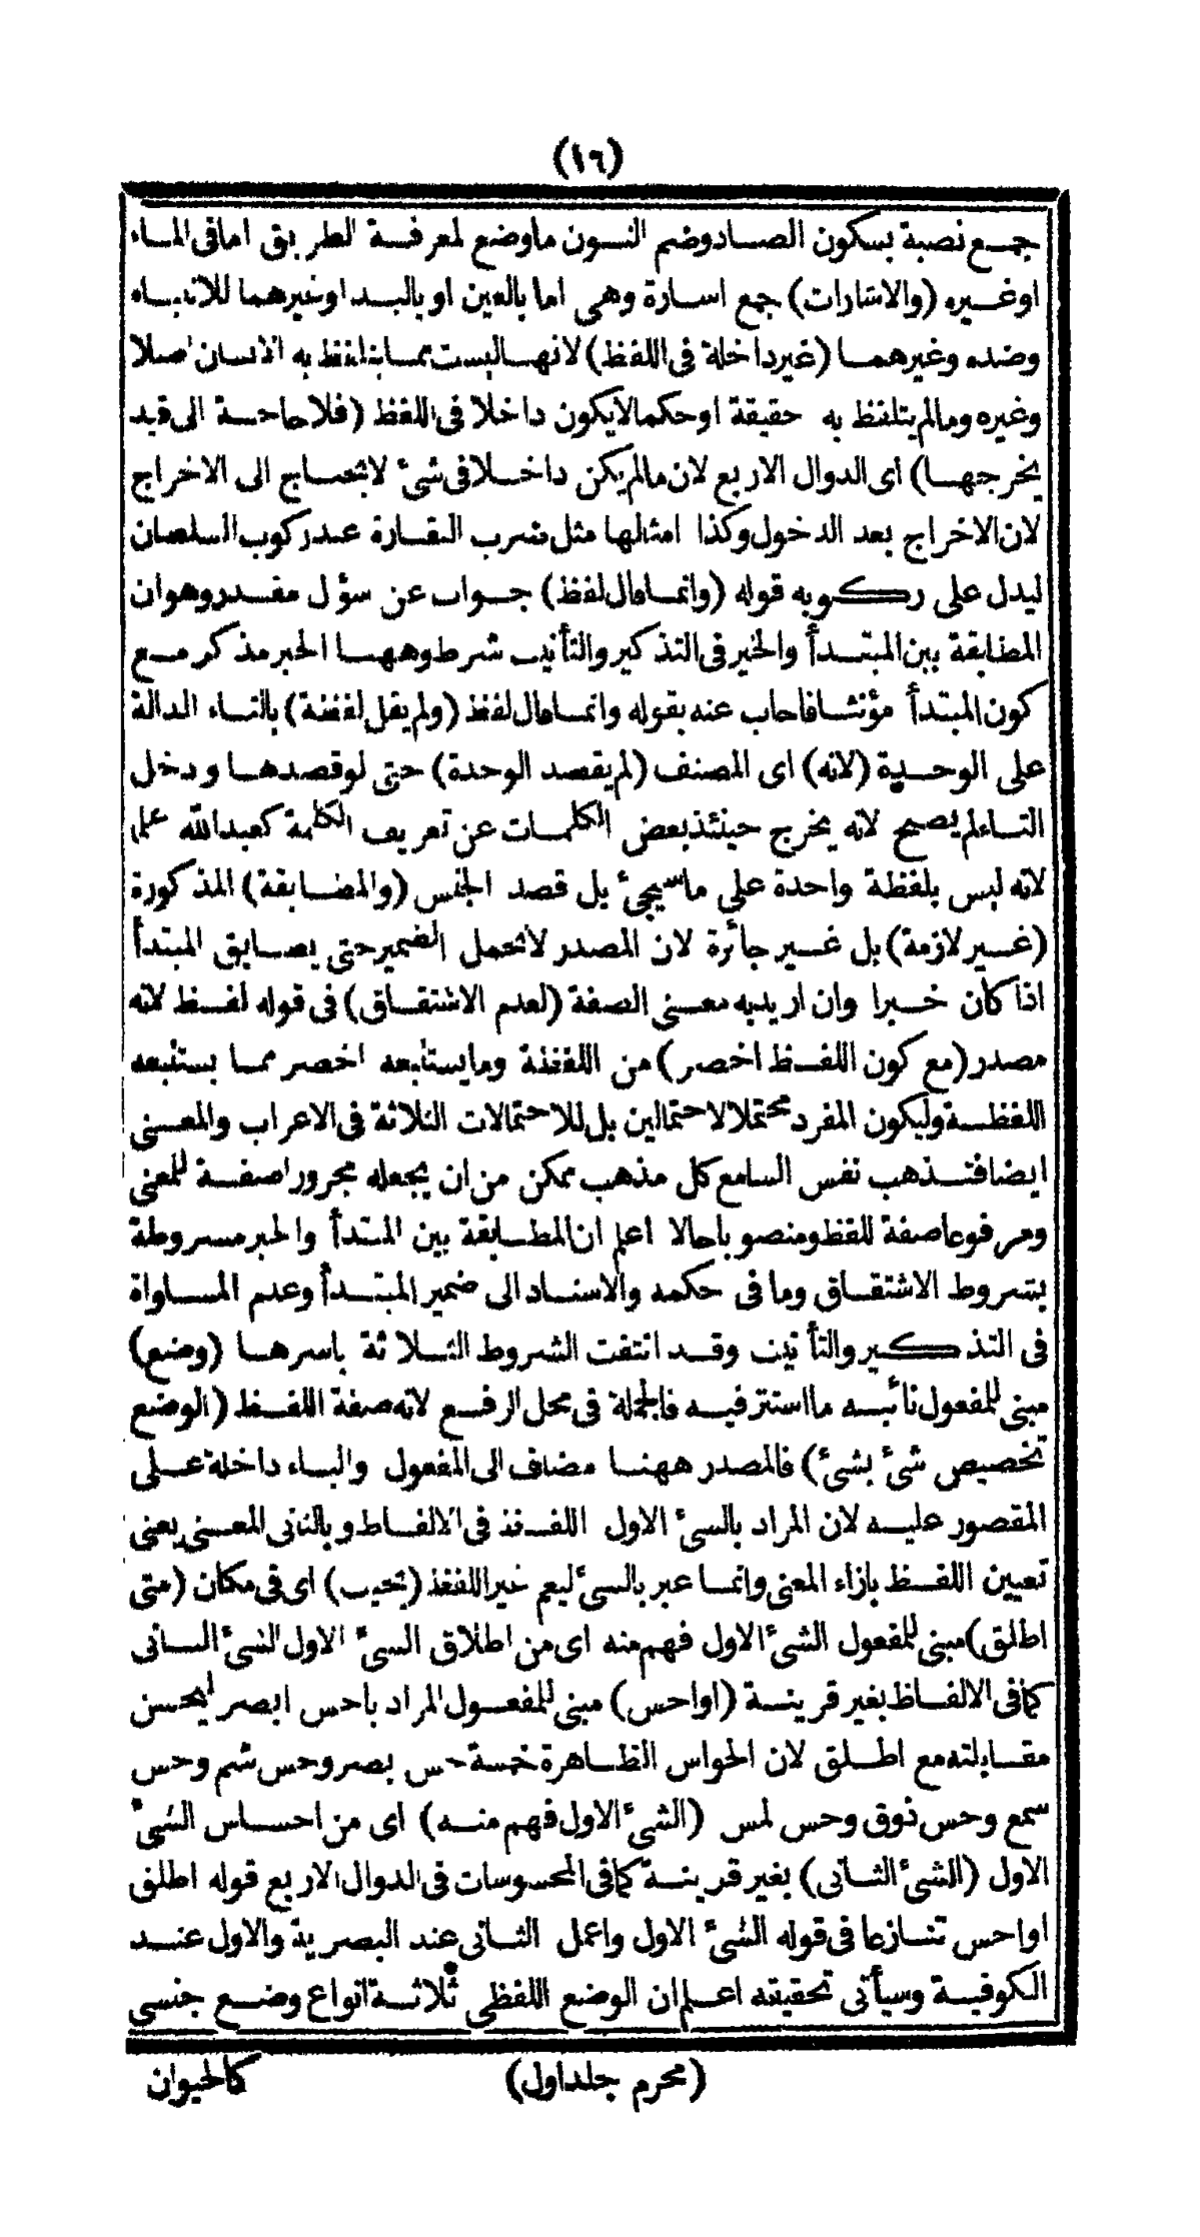 (١٦)
جمع نصبة بسكون الصاد وضم النون ما وضع لمعرفة الطريق اما فى الماء
او غيره (والاشارات) جمع اشارة وهى اما بالعين او باليد او غيرهما للانتباه
وضده وغيرهما (غير داخلة فى اللفظ) لانها ليست بمما يتلفظ به الانسان اصلا
وغيره ومالم يتلفظ به حقيقة او حكما لا يكون داخلا فى اللفظ (فلا حاجة الى قيد
يخرجها) اى الدوال الاربع لان مالم يكن داخلا فى شئ لا يحتاج الى الاخراج
لان الاخراج بعد الدخول وكذا امثالها مثل ضرب النقارة عند ركوب السلطان
ليدل على ركوبه قوله (وانما قال لفظ) جواب عن سؤل مقدر وهو ان
المطابقة بين المبتدأ والخبر فى التذكير والتأنيث شرط وههنا الخبر مذكر مع
كون المبتدأ مؤنثا فاجاب عنه بقوله وانما قال لفظ (ولم يقل لفظة) بالتاء الدالة
على الوحدة (لانه) اى المصنف (لم يقصد الوحدة) حتى لو قصدها ودخل
التاء لم يصح لانه يخرج حينئذ بعض الكلمات عن تعريف الكلمة كعبد الله علما
لانه ليس بلفظة واحدة على ما سيجئ بل قصد الجنس (والمطابقة) المذكورة
(غير لازمة) بل غير جائزة لان المصدر لا يحمل الضمير حتى يطابق المبتدأ
اذا كان خبرا وان اريد به معنى الصفة (لعدم الاشتقاق) فى قوله لفظ لانه
مصدر (مع كون اللفظ اخصر) من اللفظة وما يستتبعه اخصر مما يستتبعه
اللفظة وليكون المفرد محتملا لاحتمالين بل للاحتمالات الثلاثة فى الاعراب والمعنى
ايضا فتذهب نفس السامع كل مذهب ممكن من ان يجعله مجرورا صفة للمعنى
ومرفوعا صفة للفظ ومنصوبا حالا اعلم ان المطابقة بين المبتدأ والخبر مشروطة
بشروط الاشتقاق وما فى حكمه والاسناد الى ضمير المبتدأ وعدم المساواة
فى التذكير والتأنيث وقد انتفت الشروط الثلاثة باسرها (وضع)
مبنى للمفعول نائبه ما استتر فيه فالجملة فى محل الرفع لانه صفة اللفظ (الوضع
تخصيص شئ بشئ) فالمصدر ههنا مضاف الى المفعول والباء داخلة على
المقصور عليه لان المراد بالشئ الاول اللفظ فى الالفاظ وبالثانى المعنى يعنى
تعيين اللفظ بازاء المعنى وانما عبر بالشئ ليعم غير اللفظ (بحيث) اى فى مكان (متى
اطلق) مبنى للمفعول الشئ الاول فهم منه اى من اطلاق الشئ الاول الشئ الثانى
كما فى الالفاظ بغير قرينة (او احس) مبنى للمفعول المراد باحس ابصر ليحسن
مقابلته مع اطلق لان الحواس الظاهرة خمسة حس بصر وحس شم وحس
سمع وحس ذوق وحس لمس (الشئ الاول فهم منه) اى من احساس الشئ
الاول (الشئ الثانى) بغير قرينة كما فى المحسوسات فى الدوال الاربع قوله اطلق
او احس تنازعا فى قوله الشئ الاول واعمل الثانى عند البصرية والاول عند
الكوفية وسيأتى تحقيقه اعلم ان الوضع اللفظى ثلاثة انواع وضع جنسى
(محرم جلد اول)
كالحيوان